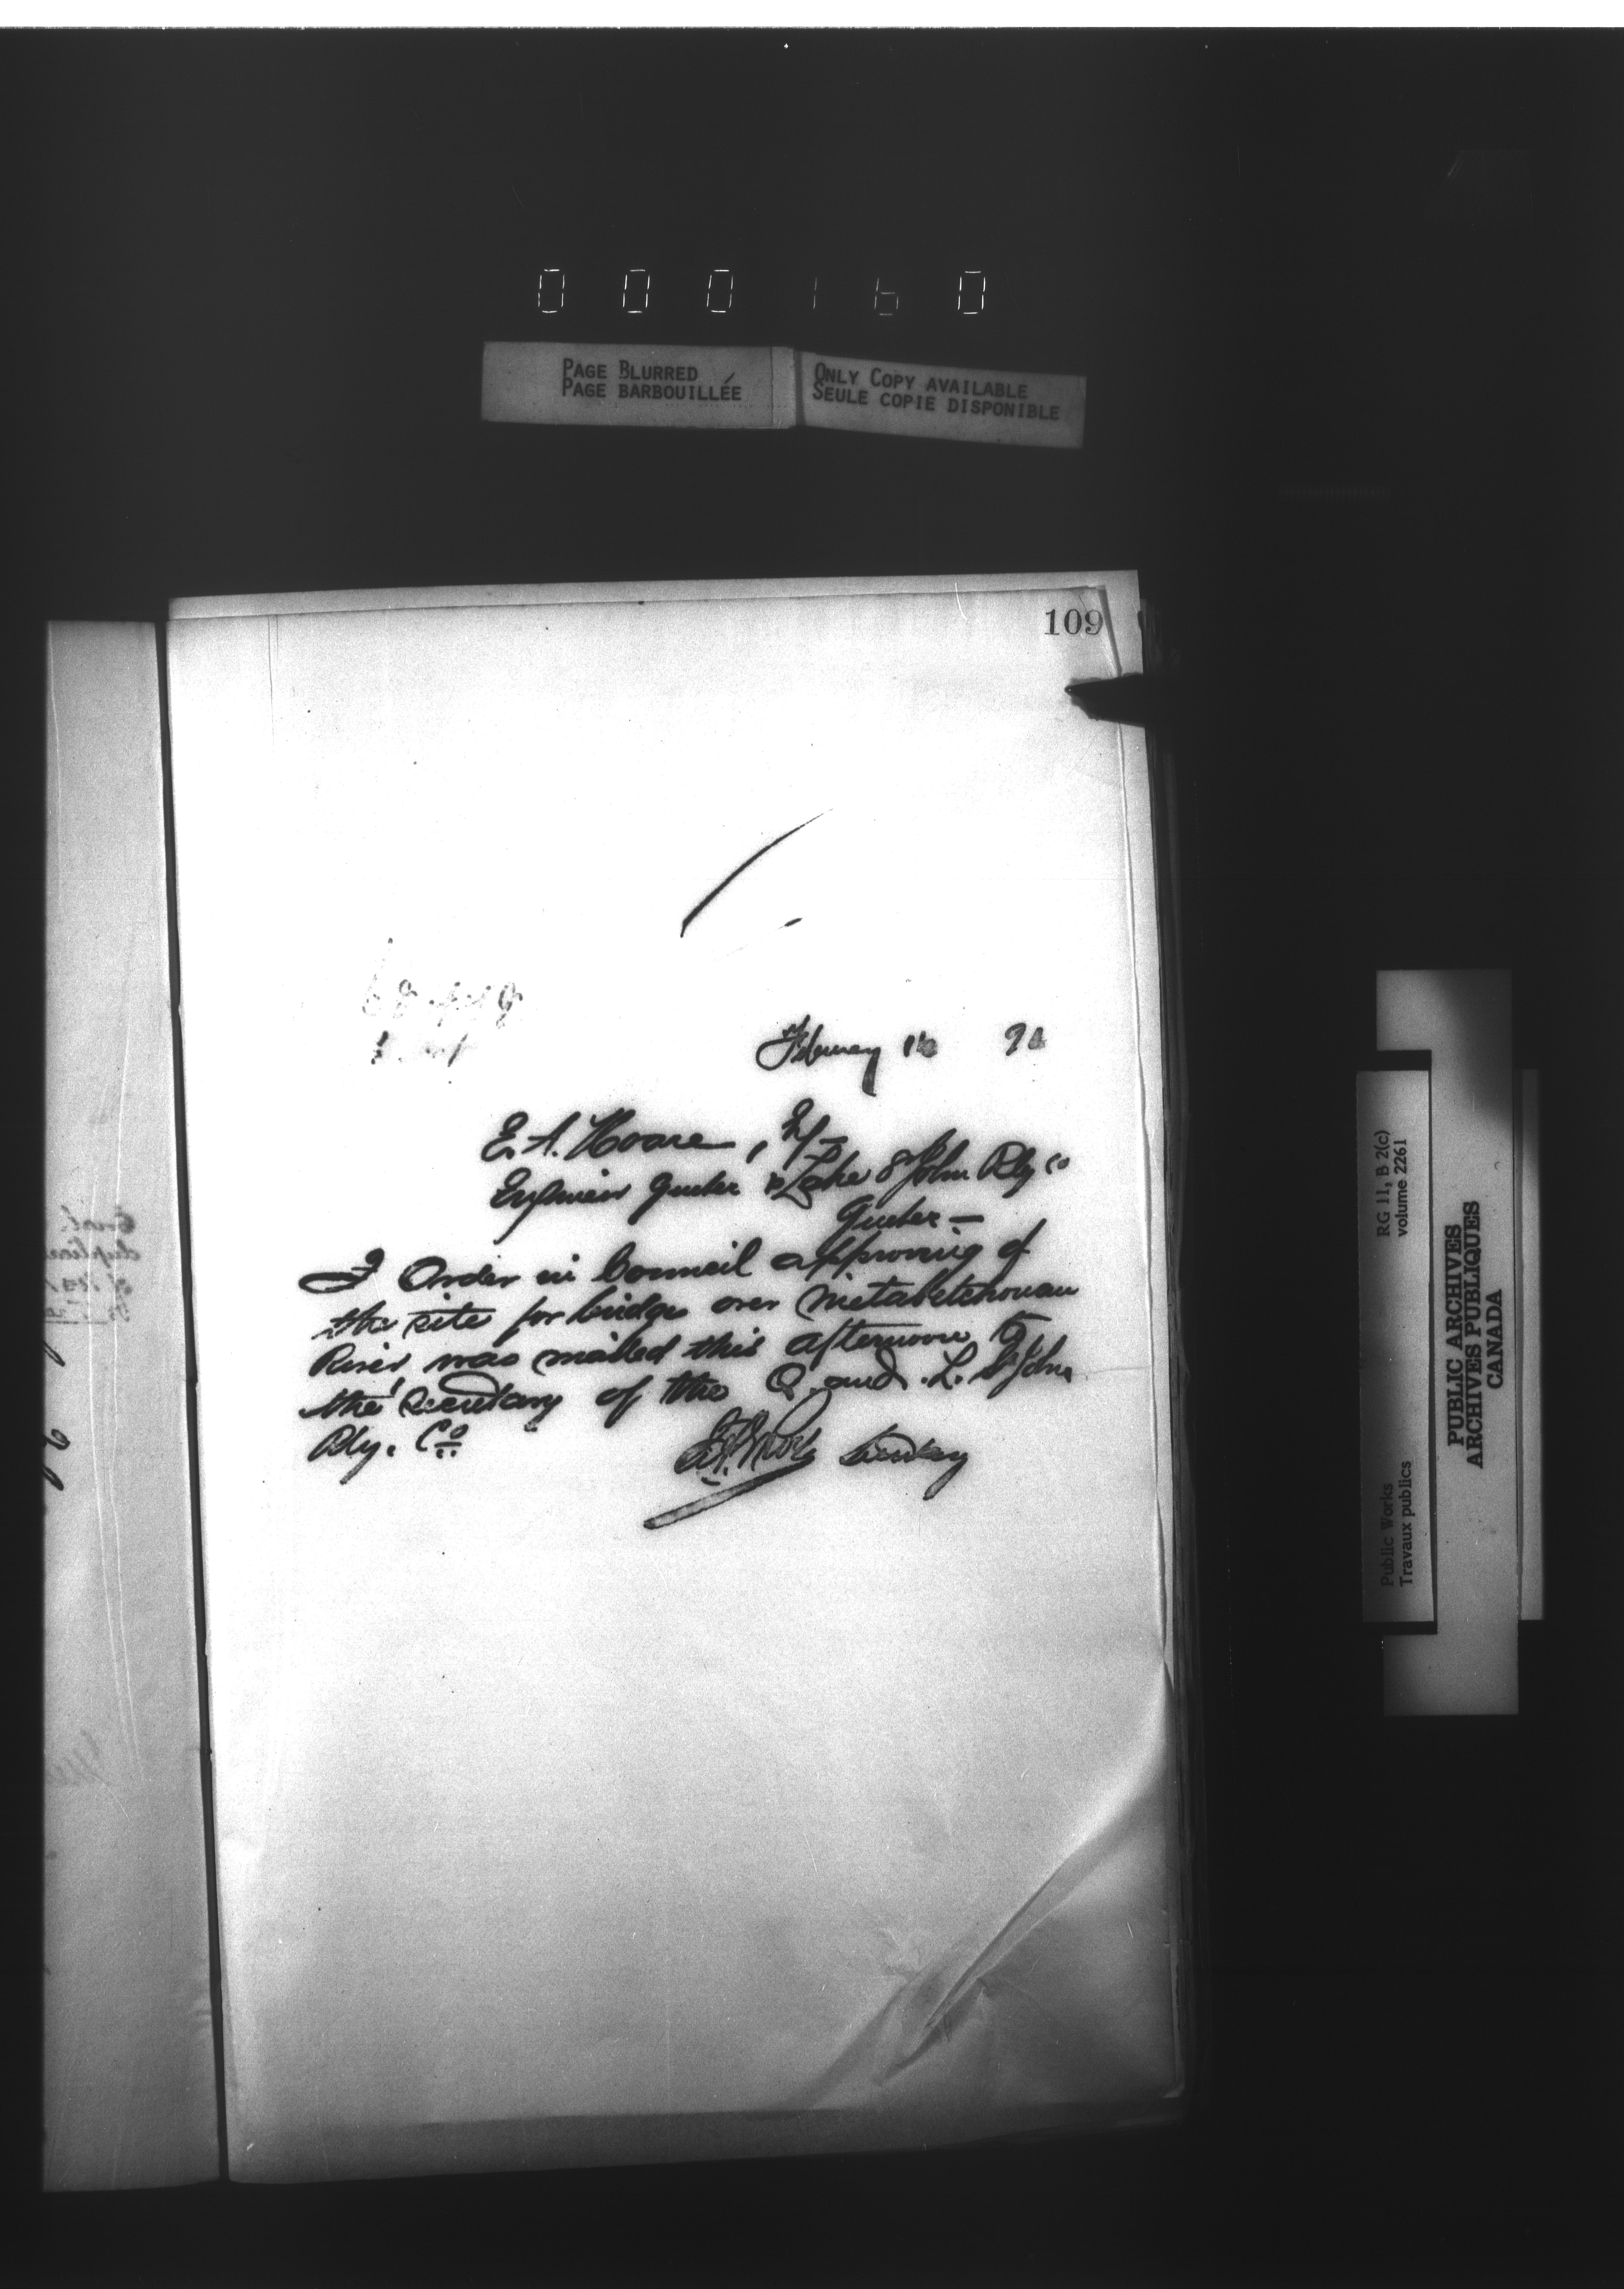 000160
PAGE BLURRED
PAGE BARBOUILLÉE
ONLY COPY AVAILABLE
SEULE COPIE DISPONIBLE
109
February 16 9
E. A. Hoare,
Engineer Quebec & Lake St John Rly Co
Quebec —
Order in Council approving of
the site for bridge over Metabetchouan
River was mailed this afternoon to
the Secretary of the Q. and L. St John
Rly. Co
Secretary
RG 11, B 2(c)
volume 2261
Public Works
Travaux publics
PUBLIC ARCHIVES
ARCHIVES PUBLIQUES
CANADA